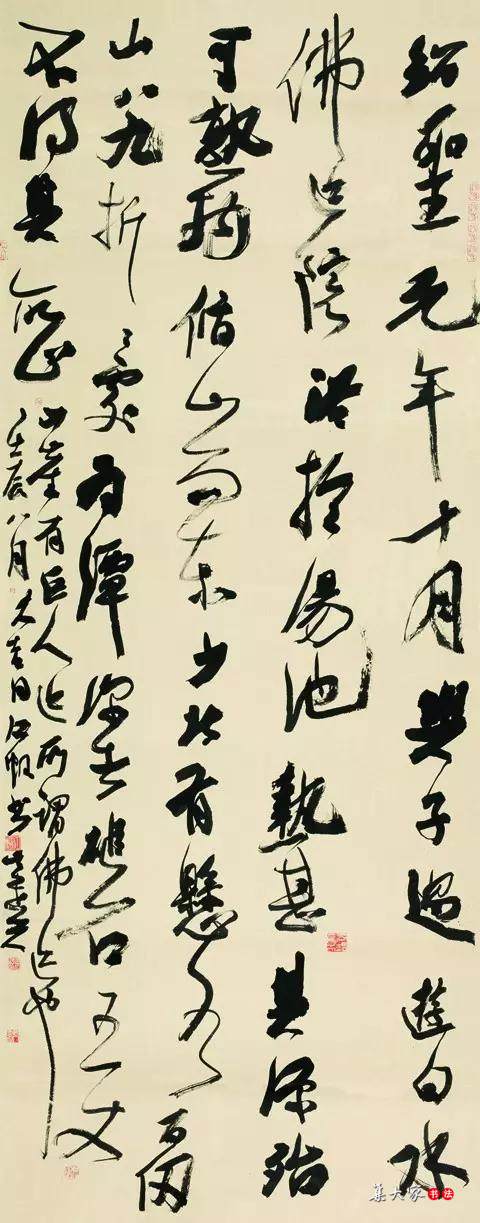 紹聖元年十月與子過遊白水
佛迹院浴於湯池熱甚其源殆
可熟物循山而東少北有懸水百仞
山八九折〻處為潭深者磓石五丈
不得其所止
山崖有巨人迹所謂佛迹也
壬辰八月大吉日石帆書
集大家书法